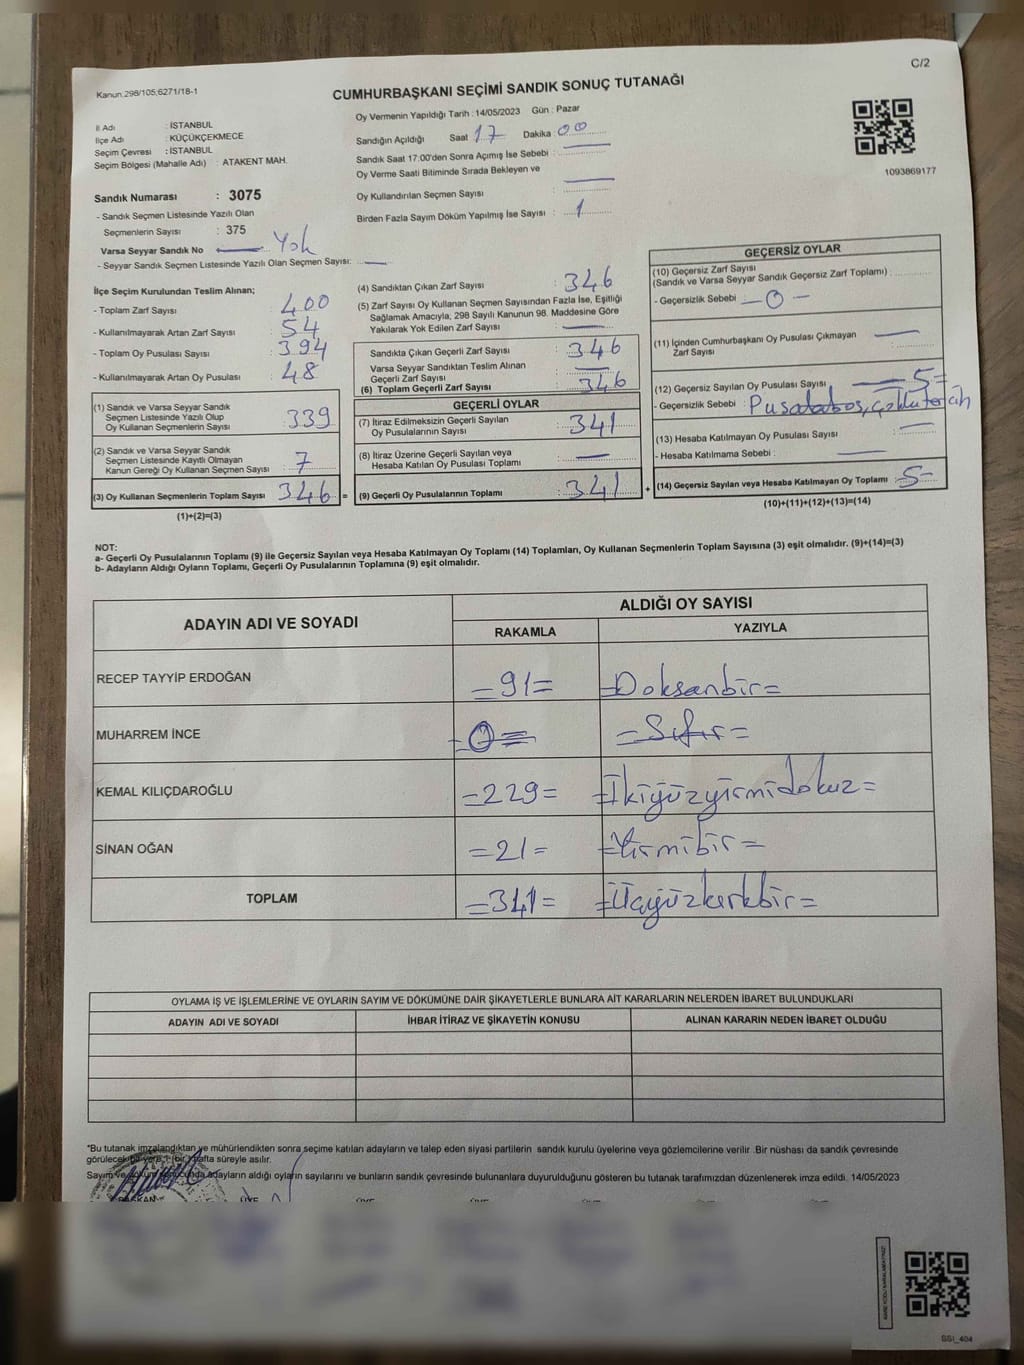 C/2
Kanun:298/105;6271/18-1
CUMHURBAŞKANI SEÇİMİ SANDIK SONUÇ TUTANAĞI
İl Adı : İSTANBUL
İlçe Adı : KÜÇÜKÇEKMECE
Seçim Çevresi : İSTANBUL
Seçim Bölgesi (Mahalle Adı) : ATAKENT MAH.
Sandık Numarası : 3075
- Sandık Seçmen Listesinde Yazılı Olan
Seçmenlerin Sayısı : 375
Varsa Seyyar Sandık No Yok
- Seyyar Sandık Seçmen Listesinde Yazılı Olan Seçmen Sayısı:
Oy Vermenin Yapıldığı Tarih : 14/05/2023 Gün : Pazar
Sandığın Açıldığı Saat 17 Dakika : 00
Sandık Saat 17:00'den Sonra Açımış İse Sebebi :
Oy Verme Saati Bitiminde Sırada Bekleyen ve
Oy Kullandırılan Seçmen Sayısı :
Birden Fazla Sayım Döküm Yapılmış İse Sayısı : 1
1093869177
İlçe Seçim Kurulundan Teslim Alınan;
- Toplam Zarf Sayısı : 400
- Kullanılmayarak Artan Zarf Sayısı : 54
- Toplam Oy Pusulası Sayısı : 394
- Kullanılmayarak Artan Oy Pusulası : 48
(1) Sandık ve Varsa Seyyar Sandık
Seçmen Listesinde Yazılı Olup
Oy Kullanan Seçmenlerin Sayısı : 339
(2) Sandık ve Varsa Seyyar Sandık
Seçmen Listesinde Kayıtlı Olmayan
Kanun Gereği Oy Kullanan Seçmen Sayısı : 7
(3) Oy Kullanan Seçmenlerin Toplam Sayısı : 346 =
(1)+(2)=(3)
(4) Sandıktan Çıkan Zarf Sayısı : 346
(5) Zarf Sayısı Oy Kullanan Seçmen Sayısından Fazla İse, Eşitliği
Sağlamak Amacıyla, 298 Sayılı Kanunun 98. Maddesine Göre
Yakılarak Yok Edilen Zarf Sayısı :
Sandıkta Çıkan Geçerli Zarf Sayısı : 346
Varsa Seyyar Sandıktan Teslim Alınan
Geçerli Zarf Sayısı :
(6) Toplam Geçerli Zarf Sayısı : 346
GEÇERLİ OYLAR
(7) İtiraz Edilmeksizin Geçerli Sayılan
Oy Pusulalarının Sayısı : 341
(8) İtiraz Üzerine Geçerli Sayılan veya
Hesaba Katılan Oy Pusulası Toplamı :
(9) Geçerli Oy Pusulalarının Toplamı : 341 +
GEÇERSİZ OYLAR
(10) Geçersiz Zarf Sayısı
(Sandık ve Varsa Seyyar Sandık Geçersiz Zarf Toplamı) :
- Geçersizlik Sebebi : — 0 —
(11) İçinden Cumhurbaşkanı Oy Pusulası Çıkmayan
Zarf Sayısı :
(12) Geçersiz Sayılan Oy Pusulası Sayısı : 5=
- Geçersizlik Sebebi :
(13) Hesaba Katılmayan Oy Pusulası Sayısı :
- Hesaba Katılmama Sebebi :
(14) Geçersiz Sayılan veya Hesaba Katılmayan Oy Toplamı : 5-
(10)+(11)+(12)+(13)=(14)
NOT:
a- Geçerli Oy Pusulalarının Toplamı (9) ile Geçersiz Sayılan veya Hesaba Katılmayan Oy Toplamı (14) Toplamları, Oy Kullanan Seçmenlerin Toplam Sayısına (3) eşit olmalıdır. (9)+(14)=(3)
b- Adayların Aldığı Oyların Toplamı, Geçerli Oy Pusulalarının Toplamına (9) eşit olmalıdır.
ADAYIN ADI VE SOYADI ALDIĞI OY SAYISI
RAKAMLA YAZIYLA
RECEP TAYYİP ERDOĞAN =91= =Doksanbir=
MUHARREM İNCE =0= =Sıfır=
KEMAL KILIÇDAROĞLU =229= =İkiyüzyirmidokuz=
SİNAN OĞAN =21= =Yirmibir=
TOPLAM =341= =Üçyüzkırkbir=
OYLAMA İŞ VE İŞLEMLERİNE VE OYLARIN SAYIM VE DÖKÜMÜNE DAİR ŞİKAYETLERLE BUNLARA AİT KARARLARIN NELERDEN İBARET BULUNDUKLARI
ADAYIN ADI VE SOYADI İHBAR İTİRAZ VE ŞİKAYETİN KONUSU ALINAN KARARIN NEDEN İBARET OLDUĞU
*Bu tutanak imzalandıktan ve mühürlendikten sonra seçime katılan adayların ve talep eden siyasi partilerin sandık kurulu üyelerine veya gözlemcilerine verilir .Bir nüshası da sandık çevresinde
görülecek bir yere 1 (bir) hafta süreyle asılır.
Sayım ve döküm sonucunda adayların aldığı oyların sayılarını ve bunların sandık çevresinde bulunanlara duyurulduğunu gösteren bu tutanak tarafımızdan düzenlenerek imza edildi. 14/05/2023
BAŞKAN ÜYE ÜYE ÜYE ÜYE ÜYE
SSI_404